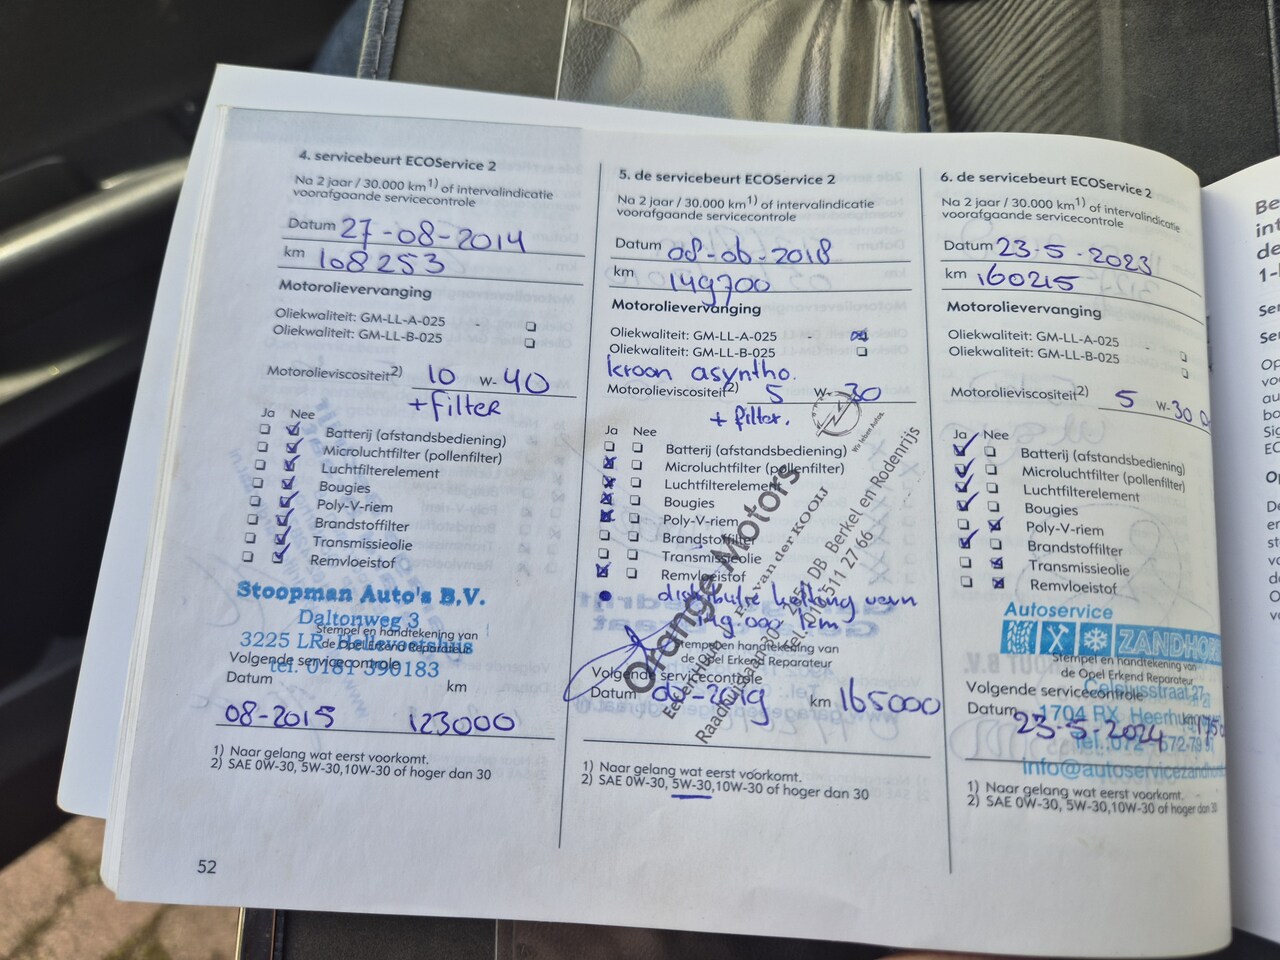 4. servicebeurt ECOService 2
Na 2 jaar / 30.000 km1) of intervalindicatie
voorafgaande servicecontrole
Datum 27-08-2014
km 108253
Motorolievervanging
Oliekwaliteit: GM-LL-A-025 -
Oliekwaliteit: GM-LL-B-025
Motorolieviscositeit2) 10 W- 40
+ filter
Ja Nee
Batterij (afstandsbediening)
Microluchtfilter (pollenfilter)
Luchtfilterelement
Bougies
Poly-V-riem
Brandstoffilter
Transmissieolie
Remvloeistof
Stoopman Auto's B.V.
Daltonweg 3
3225 LR Hellevoetsluis
tel. 0181 390183
Stempel en handtekening van
de Opel Erkend Reparateur
Volgende servicecontrole
Datum km
08-2015 123000
1) Naar gelang wat eerst voorkomt.
2) SAE 0W-30, 5W-30,10W-30 of hoger dan 30
52
5. de servicebeurt ECOService 2
Na 2 jaar / 30.000 km1) of intervalindicatie
voorafgaande servicecontrole
Datum 08-06-2018
km 149700
Motorolievervanging
Oliekwaliteit: GM-LL-A-025 -
Oliekwaliteit: GM-LL-B-025
kroon asyntho.
Motorolieviscositeit2) 5 W- 30
+ filter.
Ja Nee
Batterij (afstandsbediening)
Microluchtfilter (pollenfilter)
Luchtfilterelement
Bougies
Poly-V-riem
Brandstoffilter
Transmissieolie
Remvloeistof
distributie ketting
149.000 km
Orange Motors
van der KOOIJ
DB Berkel en Rodenrijs
511 27 66
Wir leben Autos.
Stempel en handtekening van
de Opel Erkend Reparateur
Volgende servicecontrole
Datum 06-2019 km 165000
1) Naar gelang wat eerst voorkomt.
2) SAE 0W-30, 5W-30,10W-30 of hoger dan 30
6. de servicebeurt ECOService 2
Na 2 jaar / 30.000 km1) of intervalindicatie
voorafgaande servicecontrole
Datum 23-5-2023
km 160215
Motorolievervanging
Oliekwaliteit: GM-LL-A-025
Oliekwaliteit: GM-LL-B-025
Motorolieviscositeit2) 5 W-30
Ja Nee
Batterij (afstandsbediening)
Microluchtfilter (pollenfilter)
Luchtfilterelement
Bougies
Poly-V-riem
Brandstoffilter
Transmissieolie
Remvloeistof
Autoservice
ZANDHO
Stempel en handtekening van
de Opel Erkend Reparateur
Volgende servicecontrole
Datum 23-5-2024 km
1704 RX Heerhu
tel.:072-572
info@autoservicezandho
1) Naar gelang wat eerst voorkomt.
2) SAE 0W-30, 5W-30,10W-30 of hoger dan 30